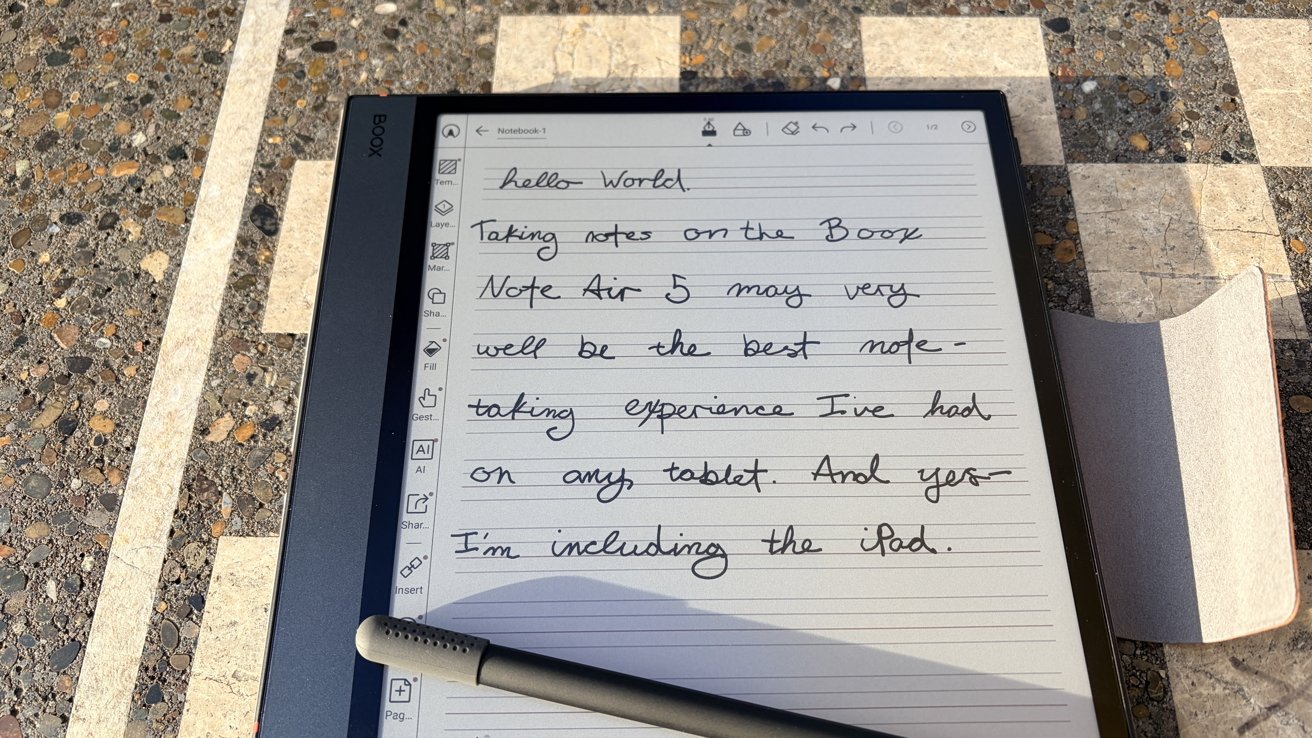 BOOX
Notebook-1
1/2
Tem...
Laye...
Mar...
Sha...
Fill
Gest...
AI
AI
Shar...
Insert
Pag...
hello World.
Taking notes on the Boox
Note Air 5 may very
well be the best note-
taking experience I've had
on any tablet. And yes—
I'm including the iPad.